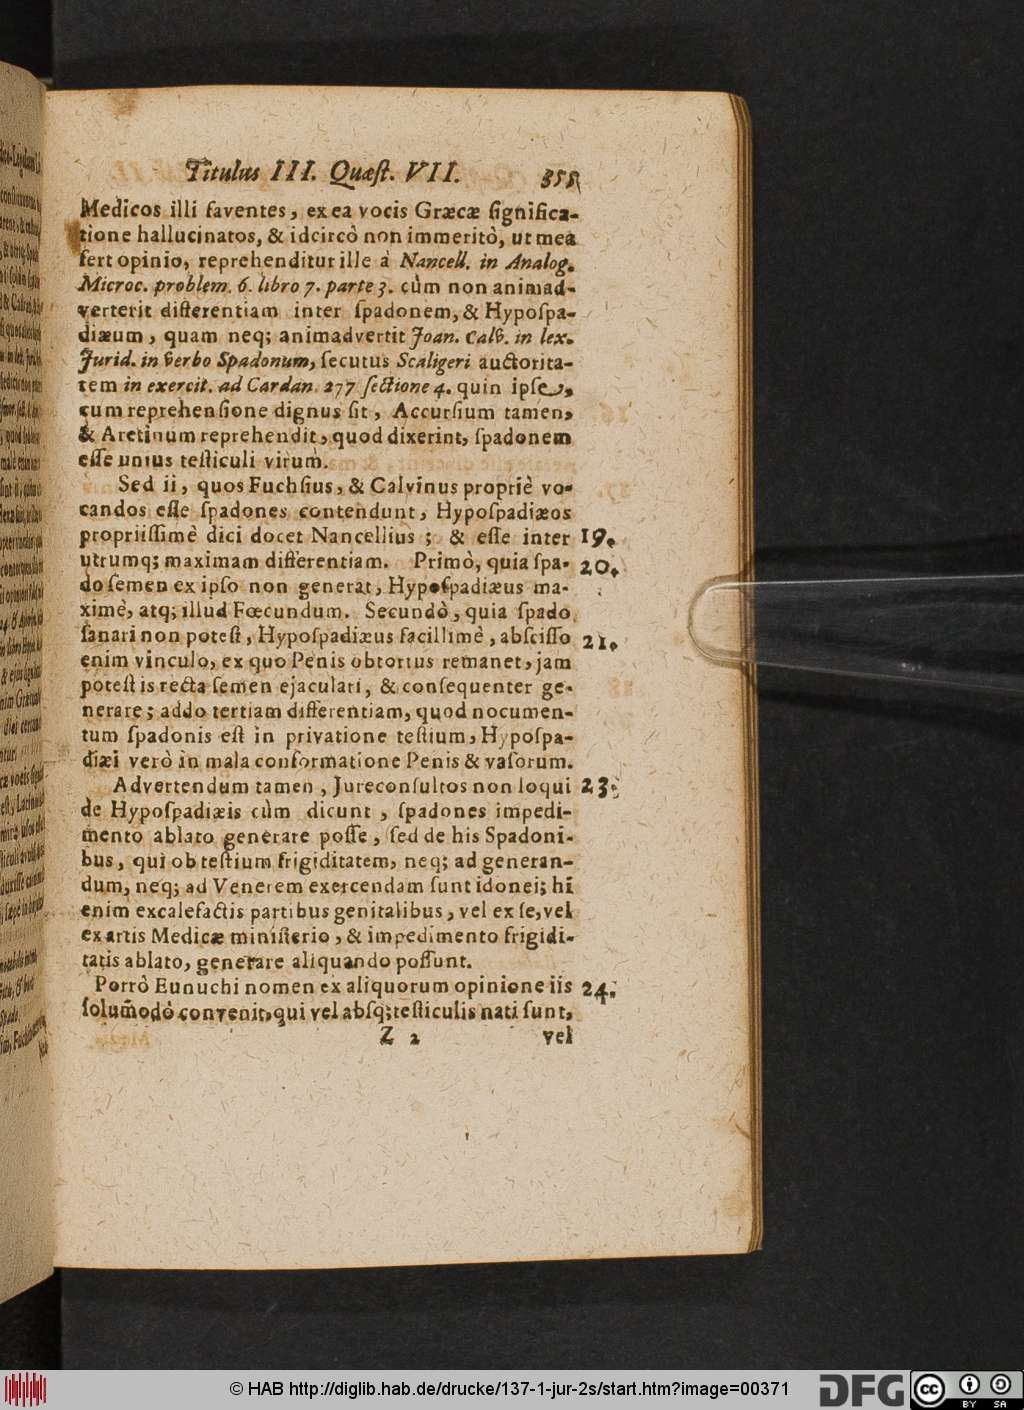 Titulus III. Quæſt. VII. 355
Medicos illi faventes, ex ea vocis Græcæ ſignifica-
tione hallucinatos, & idcircò non immeritò, ut mea
fert opinio, reprehenditur ille à Nancell. in Analog.
Microc. problem. 6. libro 7. parte 3. cùm non animad-
verterit differentiam inter ſpadonem, & Hypoſpa-
diæum, quam neq; animadvertit Joan. Calv. in lex.
Jurid. in verbo Spadonum, ſecutus Scaligeri auctorita-
tem in exercit. ad Cardan. 277 ſectione 4. quin ipſe,
cum reprehenſione dignus ſit, Accurſium tamen,
& Aretinum reprehendit, quod dixerint, ſpadonem
eſſe unius teſticuli virum.
Sed ii, quos Fuchſius, & Calvinus propriè vo-
candos eſſe ſpadones contendunt, Hypoſpadiæos
propriiſſimè dici docet Nancellius; & eſſe inter 19.
utrumq; maximam differentiam. Primò, quia ſpa- 20.
do ſemen ex ipſo non generat, Hypoſpadiæus ma-
ximè, atq; illud Fœcundum. Secundò, quia ſpado
ſanari non poteſt, Hypoſpadiæus facillimè, abſciſſo 21.
enim vinculo, ex quo Penis obtortus remanet, jam
poteſt is recta ſemen ejaculari, & conſequenter ge-
nerare; addo tertiam differentiam, quod nocumen-
tum ſpadonis eſt in privatione teſtium, Hypoſpa-
diæi verò in mala conformatione Penis & vaſorum.
Advertendum tamen, Jureconſultos non loqui 23.
de Hypoſpadiæis cùm dicunt, ſpadones impedi-
mento ablato generare poſſe, ſed de his Spadoni-
bus, qui ob teſtium frigiditatem, neq; ad generan-
dum, neq; ad Venerem exercendam ſunt idonei; hi
enim excalefactis partibus genitalibus, vel ex ſe, vel
ex artis Medicæ miniſterio, & impedimento frigidi-
tatis ablato, generare aliquando poſſunt.
Porrò Eunuchi nomen ex aliquorum opinione iis 24.
ſolum̃odò convenit, qui vel abſq; teſticulis nati ſunt,
Z 2 vel
© HAB http://diglib.hab.de/drucke/137-1-jur-2s/start.htm?image=00371
DFG
cc BY SA